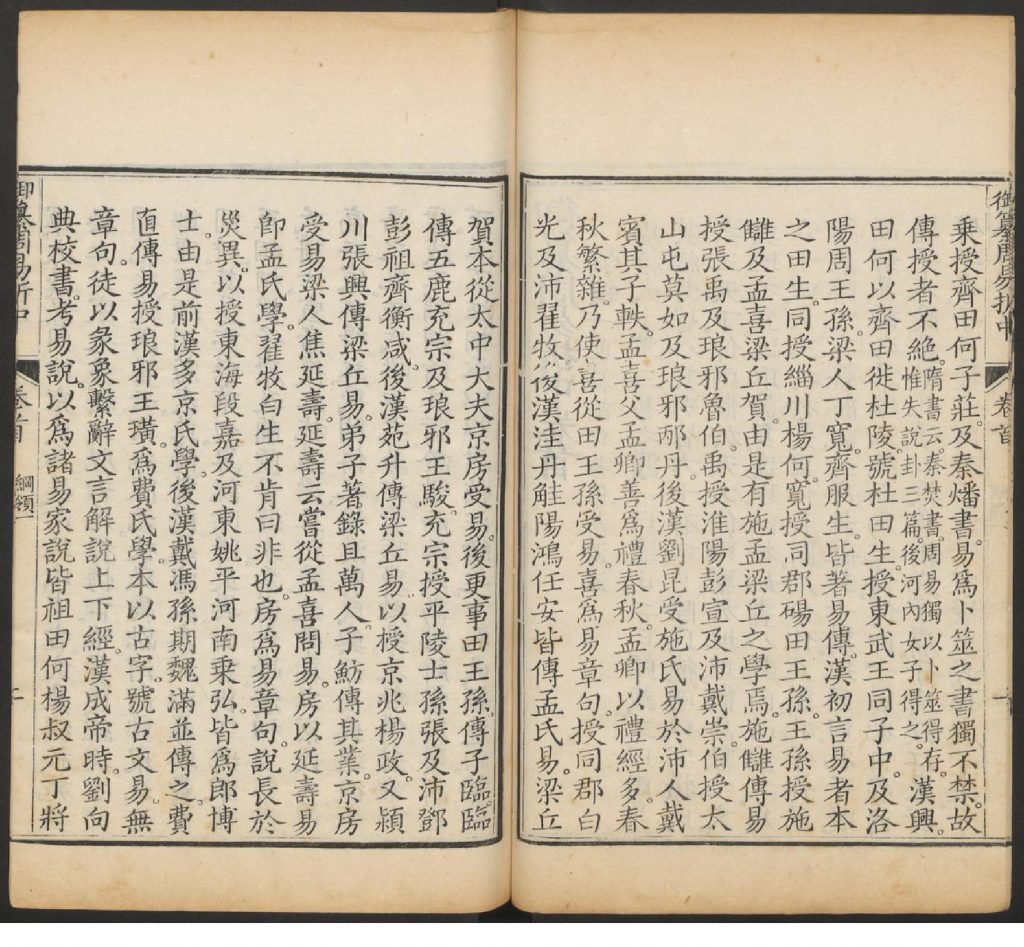 御纂周易折中 卷首
乘授齊田何子莊及秦燔書易爲卜筮之書獨不禁故
傳授者不絶隋書云秦焚書周易獨以卜筮得存惟失說卦三篇後河內女子得之漢興
田何以齊田徙杜陵號杜田生授東武王同子中及洛
陽周王孫梁人丁寬齊服生皆著易傳漢初言易者本
之田生同授緇川楊何寬授同郡碭田王孫王孫授施
讎及孟喜梁丘賀由是有施孟梁丘之學焉施讎傳易
授張禹及琅邪魯伯禹授淮陽彭宣及沛戴崇伯授太
山屯莫如及琅邪邴丹後漢劉昆受施氏易於沛人戴
賓其子軼孟喜父孟卿善爲禮春秋孟卿以禮經多春
秋繁雜乃使喜從田王孫受易喜爲易章句授同郡白
光及沛翟牧後漢洼丹觟陽鴻任安皆傳孟氏易梁丘
賀本從太中大夫京房受易後更事田王孫傳子臨臨
傳五鹿充宗及琅邪王駿充宗授平陵士孫張及沛鄧
彭祖齊衡咸後漢范升傳梁丘易以授京兆楊政又潁
川張興傳梁丘易弟子著錄且萬人子魴傳其業京房
受易梁人焦延壽延壽云嘗從孟喜問易房以延壽易
卽孟氏學翟牧白生不肯曰非也房爲易章句說長於
災異以授東海段嘉及河東姚平河南乘弘皆爲郎博
士由是前漢多京氏學後漢戴馮孫期魏滿並傳之費
直傳易授琅邪王璜爲費氏學本以古字號古文易無
章句徒以彖象繫辭文言解說上下經漢成帝時劉向
典校書考易說以爲諸易家說皆祖田何楊叔元丁將
御纂周易折中 卷首 綱領一